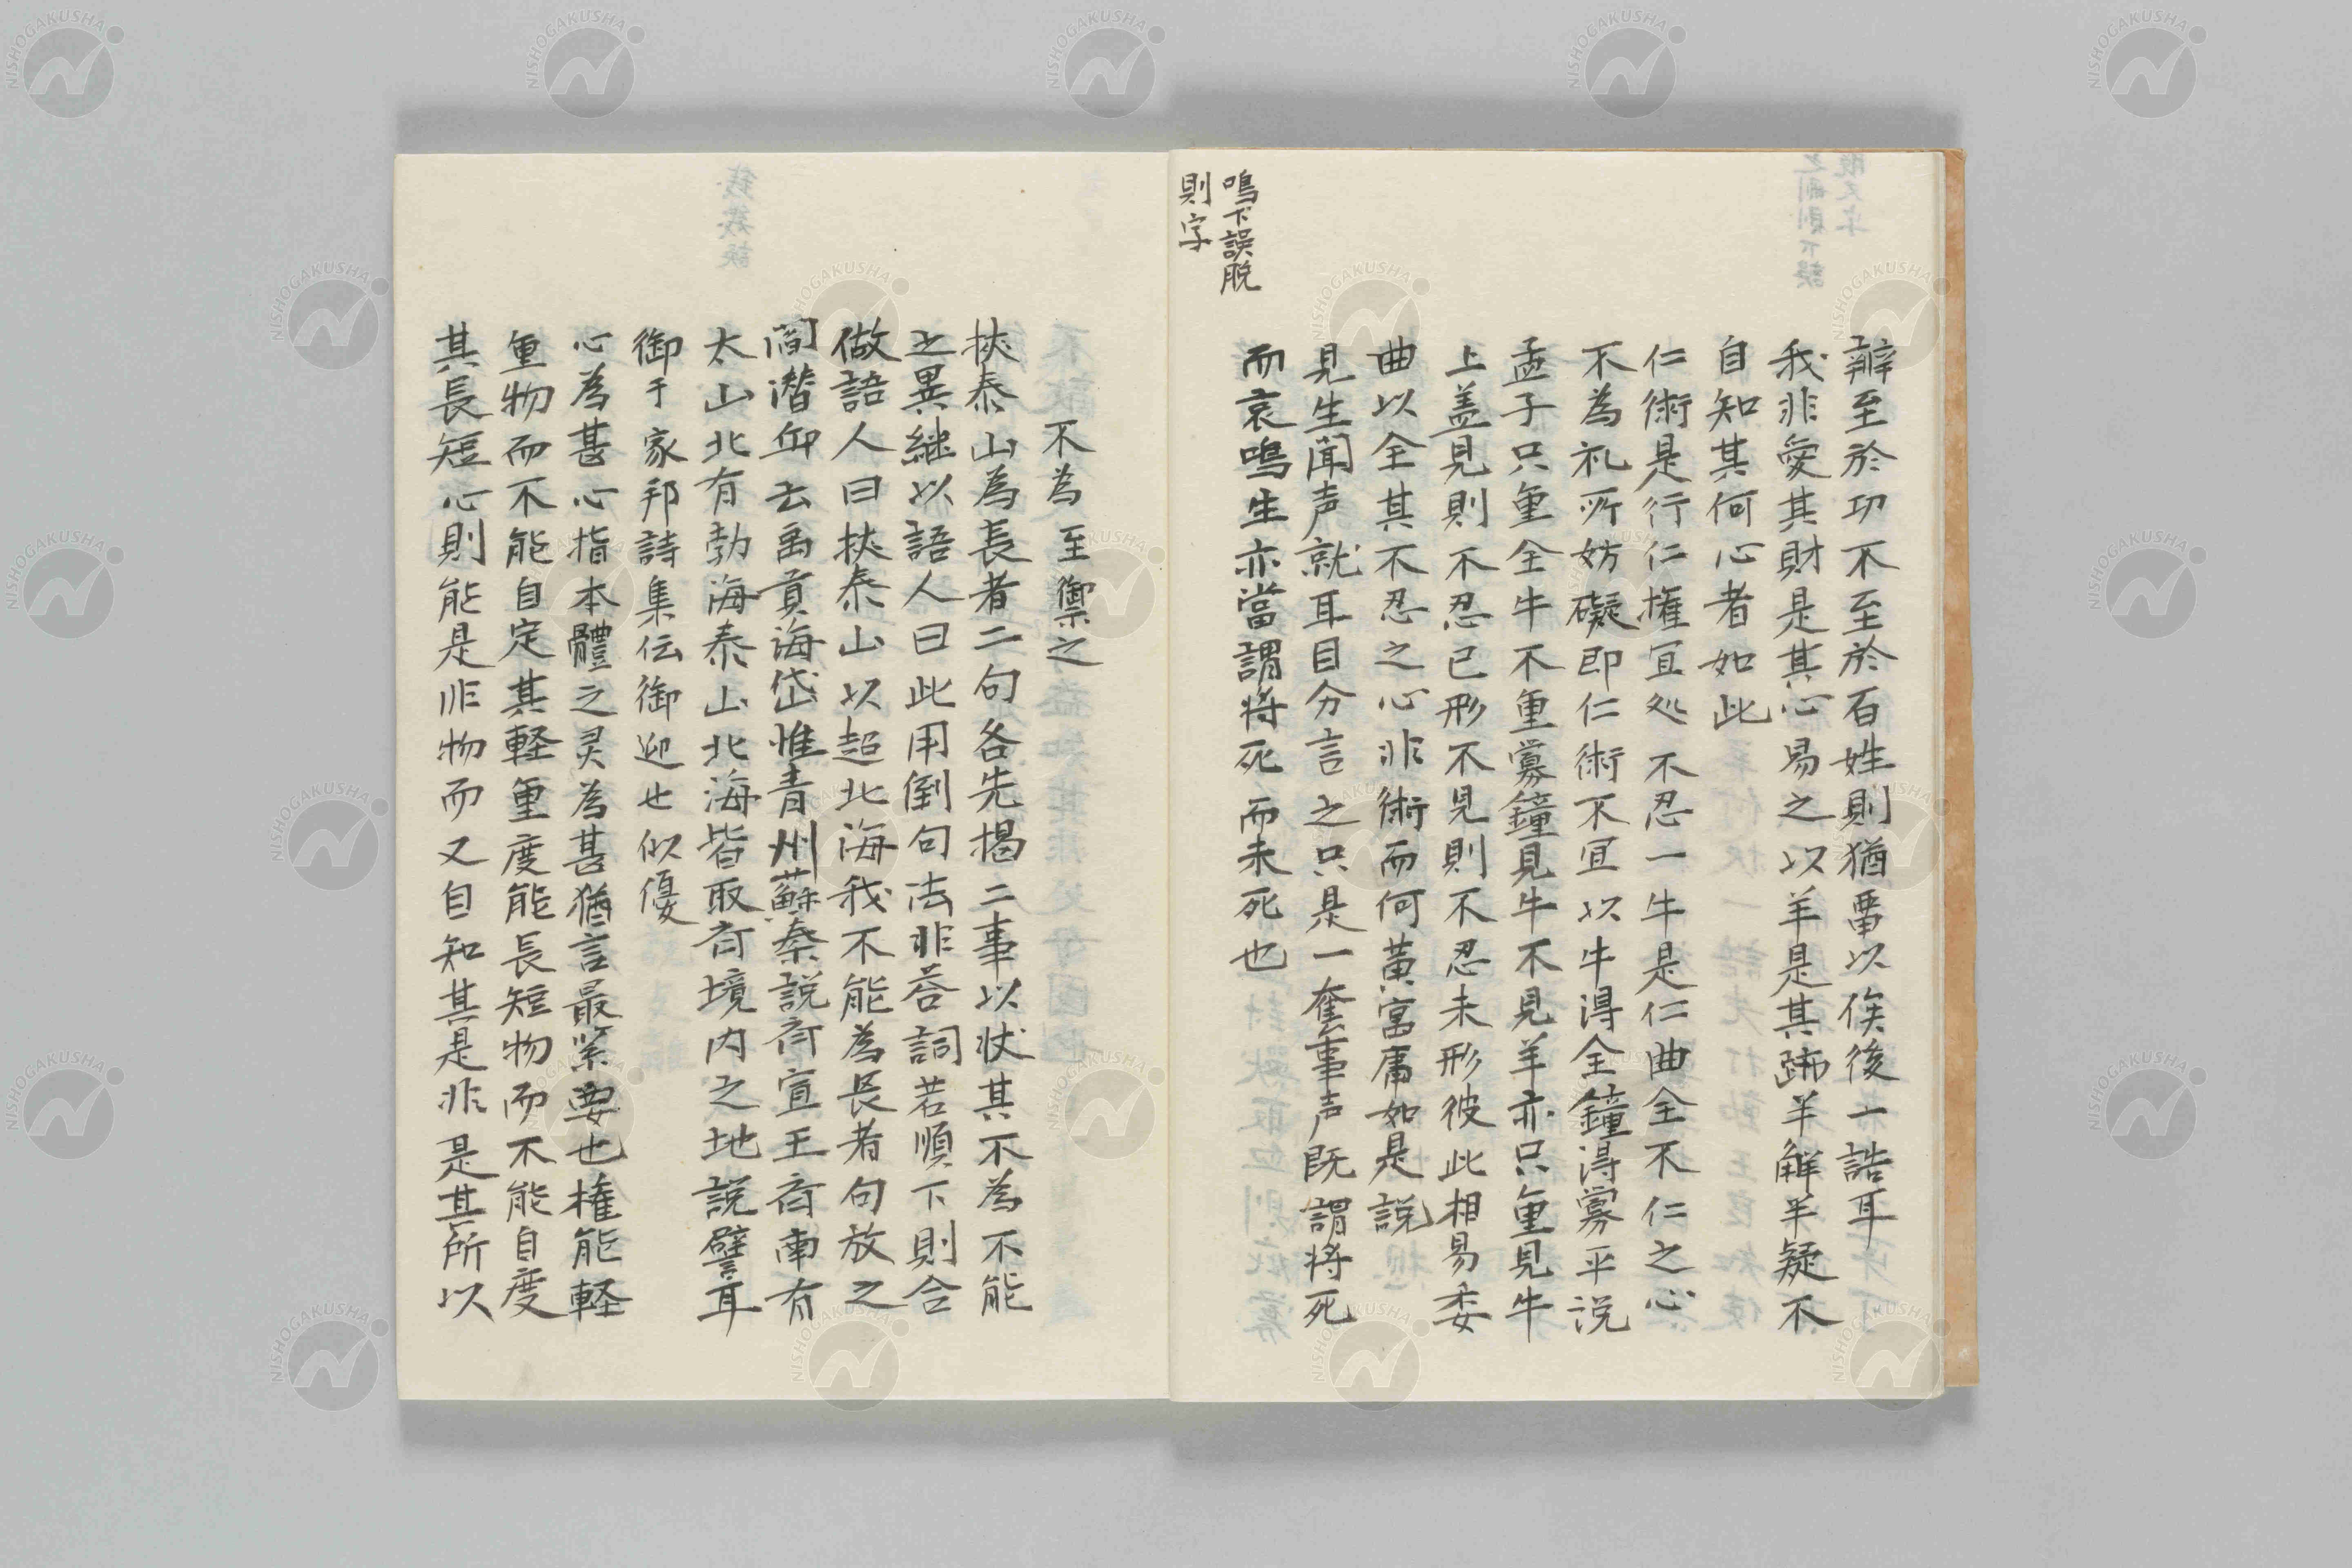 辧至於功不至於百姓則猶畱以俟後一誥耳
我非愛其財是其心易之以羊是其跡羊解羊疑不
自知其何心者如此
仁術是行仁權宜処不忍一牛是仁曲全不仁之心
不為礼所妨礙即仁術不宜以牛得全鐘得寡平説
孟子只重全牛不重寡鐘見牛不見羊亦只重見牛
上盖見則不忍已形不見則不忍未形彼此相易委
曲以全其不忍之心非術而何黄冨庸如是説
見生聞声就耳目分言之只是一奎事声既謂将死
而哀鳴生亦當謂将死而未死也
鳴下誤脱
則字
不為至禦之
挾泰山為長者二句各先揭二事以状其不為不能
之異継以語人曰此用倒句法非荅詞若順下則合
做語人曰挾泰山以超北海我不能為長者句放之
閻潜仰云禹貢海岱惟青州蘇秦説斉宣王斉南有
太山北有勃海泰山北海皆取斉境内之地説譬耳
御于家邦詩集伝御迎也似優
心為甚心指本體之灵為甚猶言最紧要也権能軽
重物而不能自定其軽重度能長短物而不能自度
其長短心則能是非物而又自知其是非是其所以
NISHOGAKUSHA